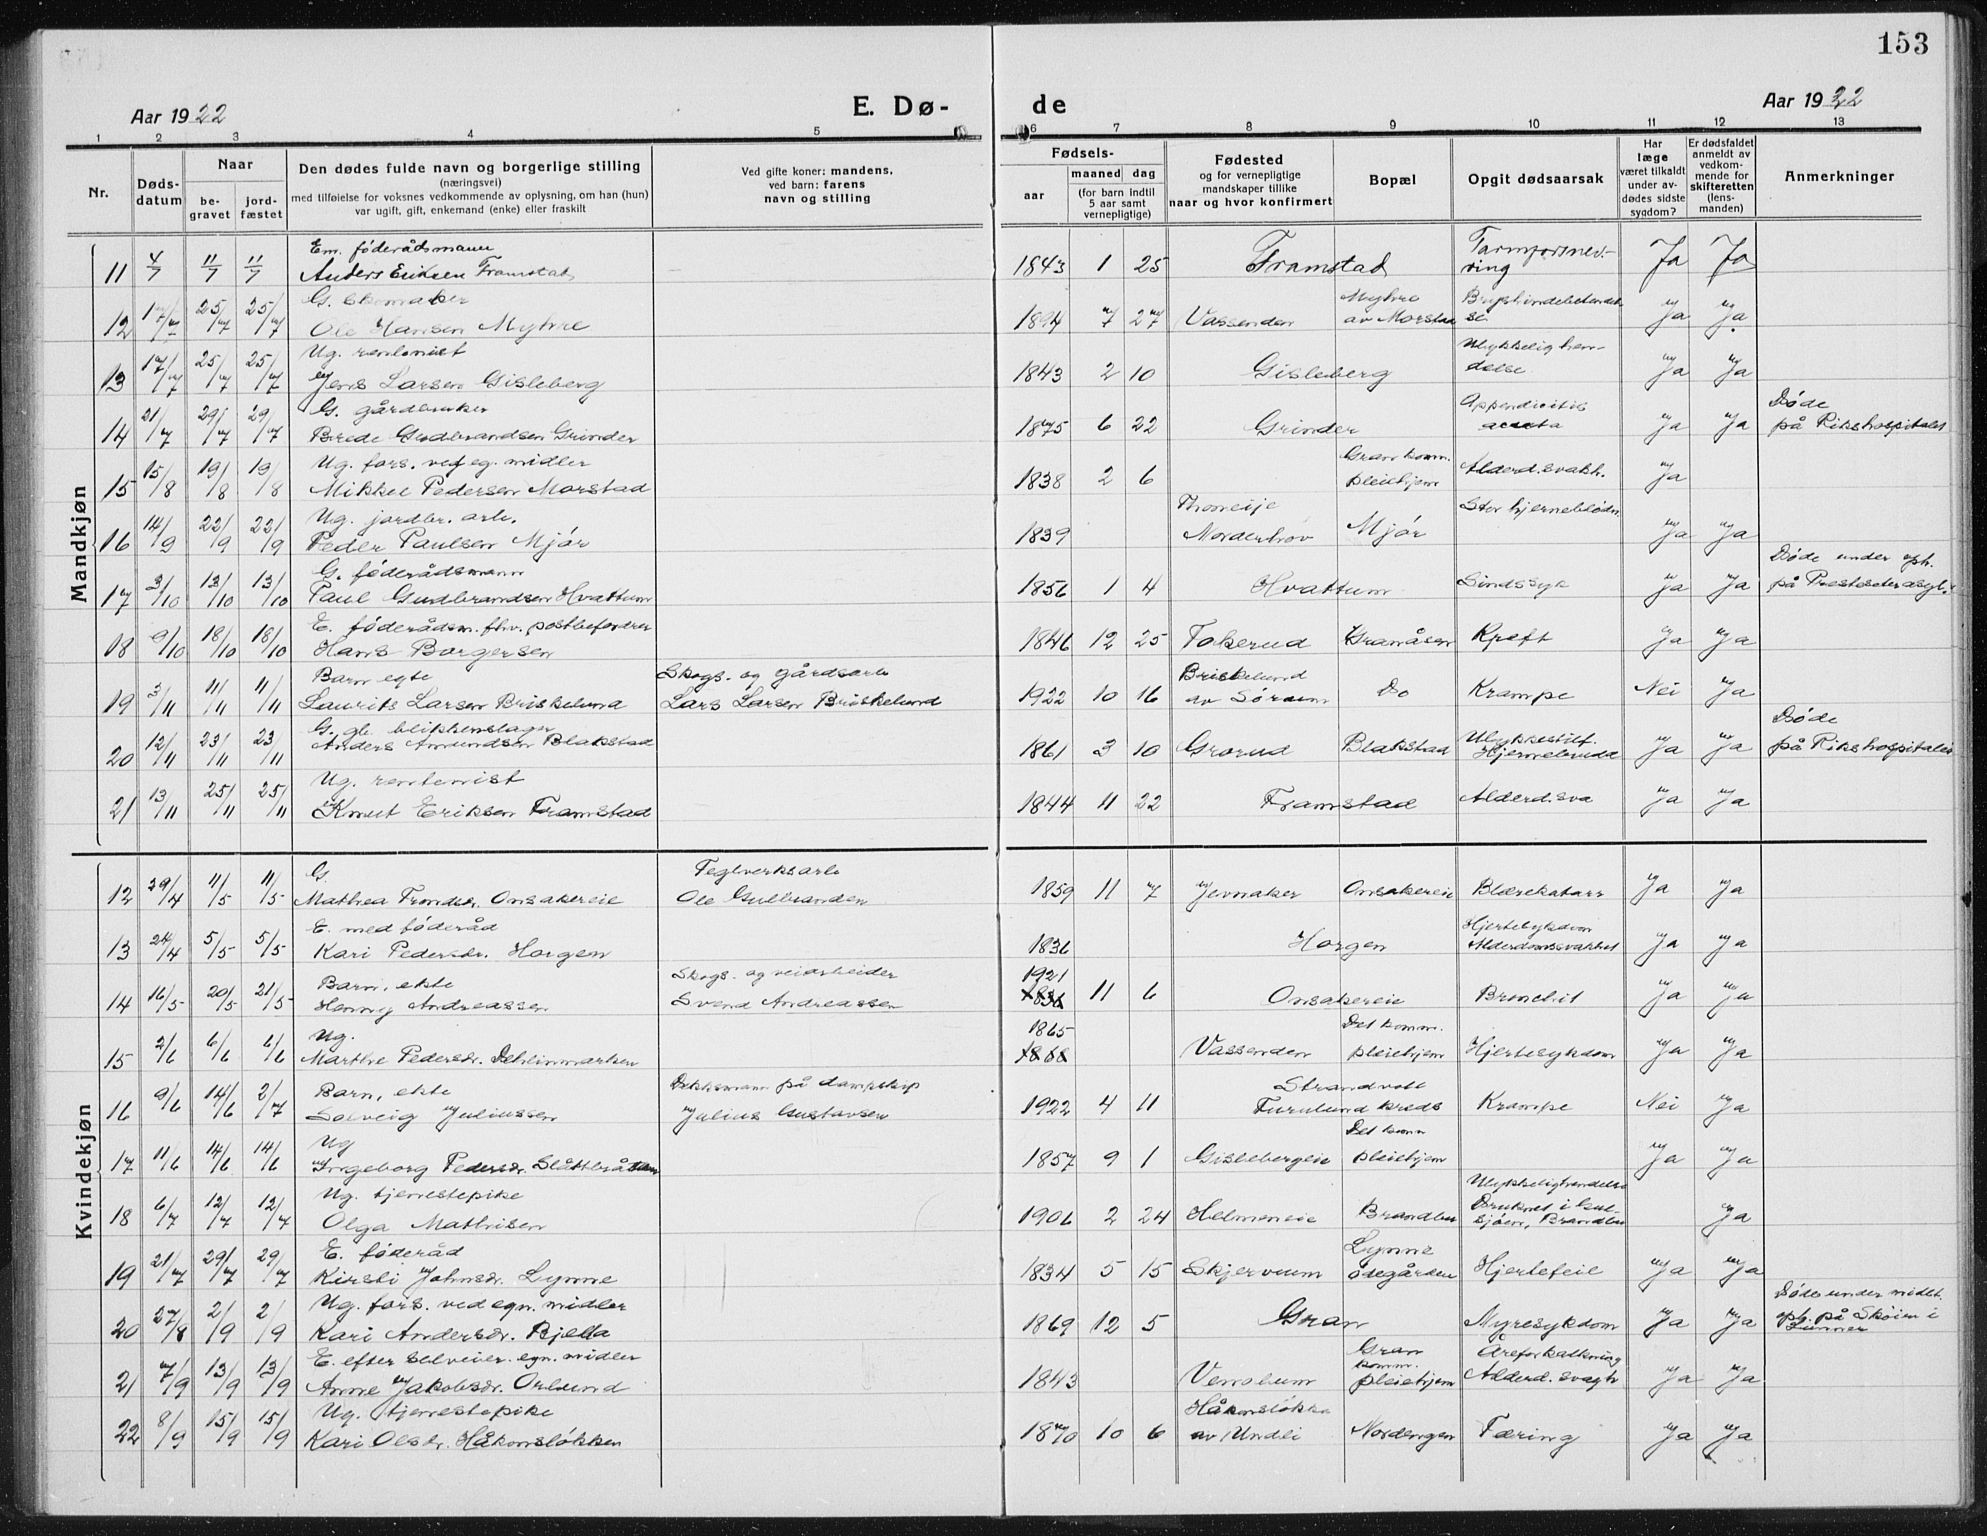 153
Aar 1922
E. Dø-
de
Aar 1922
1 2 3 4 5 6 7 8 9 10 11 12 13
Nr.
Døds-
datum
Naar
be-
gravet
jord-
fæstet
Den dødes fulde navn og borgerlige stilling
(næringsvei)
med tilføielse for voksnes vedkommende av oplysning, om han (hun)
var ugift, gift, enkemand (enke) eller fraskilt
Ved gifte koner: mandens,
ved barn: farens
navn og stilling
Fødsels-
aar
maaned dag
(for barn indtil
5 aar samt
vernepligtige)
Fødested
og for vernepligtige
mandskaper tillike
naar og hvor konfirmert
Bopæl
Opgit dødsaarsak
Har
læge
været tilkaldt
under av-
dødes sidste
sygdom?
Er dødsfaldet
anmeldt av
vedkom-
mende for
skifteretten
(lens-
manden)
Anmerkninger
Mandkjøn
Em. føderådsmann
11 4/7 11/7 11/7 Anders Eriksen Framstad 1843 1 25 Framstad Tarmforsnev-
ring Ja Ja
G. skomaker
12 17/7 25/7 25/7 Ole Hansen Myhre 1894 7 27 Vassenden Myhre
av Morstad Ja Ja
Ug. rentenist
13 17/7 25/7 25/7 Jens Larsen Gisleberg 1843 2 10 Gisleberg Ulykkelig hen-
delse Ja Ja
G. gårdbruker
14 21/7 29/7 29/7 Brede Gudbrandsen Grinder 1875 6 22 Grinder Appendicitis
acuta Ja Ja Døde
på Rikshospitalet
Ug. fors. ved eg. midler
15 15/8 19/8 19/8 Mikkel Pedersen Morstad 1838 2 6 Gran komm.
pleiehjem Alderd.svakh. Ja
Ug. jordbr. arb.
16 14/9 22/9 22/9 Peder Paulsen Mjør 1839 Thoneije
Norderhov Mjør Stor hjerneblødn. Ja Ja
G. føderådsmann
17 3/10 13/10 13/10 Paul Gudbrandsen Hvattum 1856 1 4 Hvattum Sindssyk Ja Ja Døde under oph.
på Presteseter asyl.
E. føderådsm. fhv. postbefordrer
18 9/10 18/10 18/10 Hans Borgersen 1846 12 25 Tokerud Granåsen Kreft Ja Ja
Barn egte
19 3/11 11/11 11/11 Laurits Larsen Briskelund Skogs. og gårdsarb
Lars Larsen Briskelund 1922 10 16 Briskelund
av Sørum Do Krampe Nei Ja
G. gb. blikkenslager
20 12/11 23/11 23/11 Anders Amundsen Blakstad 1861 3 10 Grorud Blakstad Ulykkestilf.
Hjernebrudd Ja Ja Døde
på Rikshospitalet
Ug. rentenist
21 13/11 25/11 25/11 Knut Eriksen Framstad 1844 11 22 Framstad Alderd.sva Ja Ja
Kvindekjøn
G
12 29/4 11/5 11/5 Mathea Trondsr. Onsakereie Teglverksarb
Ole Gulbranden 1859 11 7 Jevnaker Onsakereie Blærekatarr Ja Ja
E. med føderåd
13 24/4 5/5 5/5 Kari Pedersdr. Horgen 1836 Horgen Hjertesykdom
Alderdomssvakhet Ja Ja
Barn, ekte
14 16/5 20/5 21/5 Henny Andreassen Skogs. og veiarbeider
Svend Andreassen 1921
1836 11 6 Onsakereie Bronchit Ja Ja
Ug.
15 2/6 6/6 6/6 Marthe Pedersdr. Dehlinmarken 1865
1888 Vassenden Det komm.
pleiehjem Hjertesykdom Ja Ja
Barn, ekte
16 9/6 14/6 2/7 Solveig Juliussen Dekksmann på dampskip
Julius Gustavsen 1922 4 11 Strandvoll
Furulund kreds Krampe Nei Ja
Ug
17 11/6 14/6 14/6 Ingeborg Pedersdr. Slåttbråten 1857 9 1 Gislebergeie Det komm
pleiehjem Ja Ja
Ug. tjenestepike
18 6/7 12/7 12/7 Olga Mathisen 1906 2 24 Helmeneie Brandbu Ulykkelighendelse
Druknet i Gul-
sjøen, Brandbu Ja
E. føderåd
19 21/7 29/7 29/7 Kirsti Johnsdr. Lynne 1834 5 15 Skjervum Lynne
ødegården Hjertefeil Ja Ja
Ug. fors. ved egn. midler
20 27/8 2/9 2/9 Kari Andersdr. Bjella 1869 12 5 Gran Nyresykdom Ja Ja Døde under midlt.
oph. på Skøien i
Lunner
E. efter selveier. egn. midler
21 7/9 13/9 13/9 Anne Jakobsdr. Orlund 1843 Vennolum Gran
komm.
pleiehjem Åreforkalkning
Alderd. svagh Ja Ja
Ug. tjenestepike
22 8/9 15/9 15/9 Kari Olsdr. Håkonsløkken 1870 10 6 Håkonsløkke
av Undli Nordengen Tæring Ja Ja